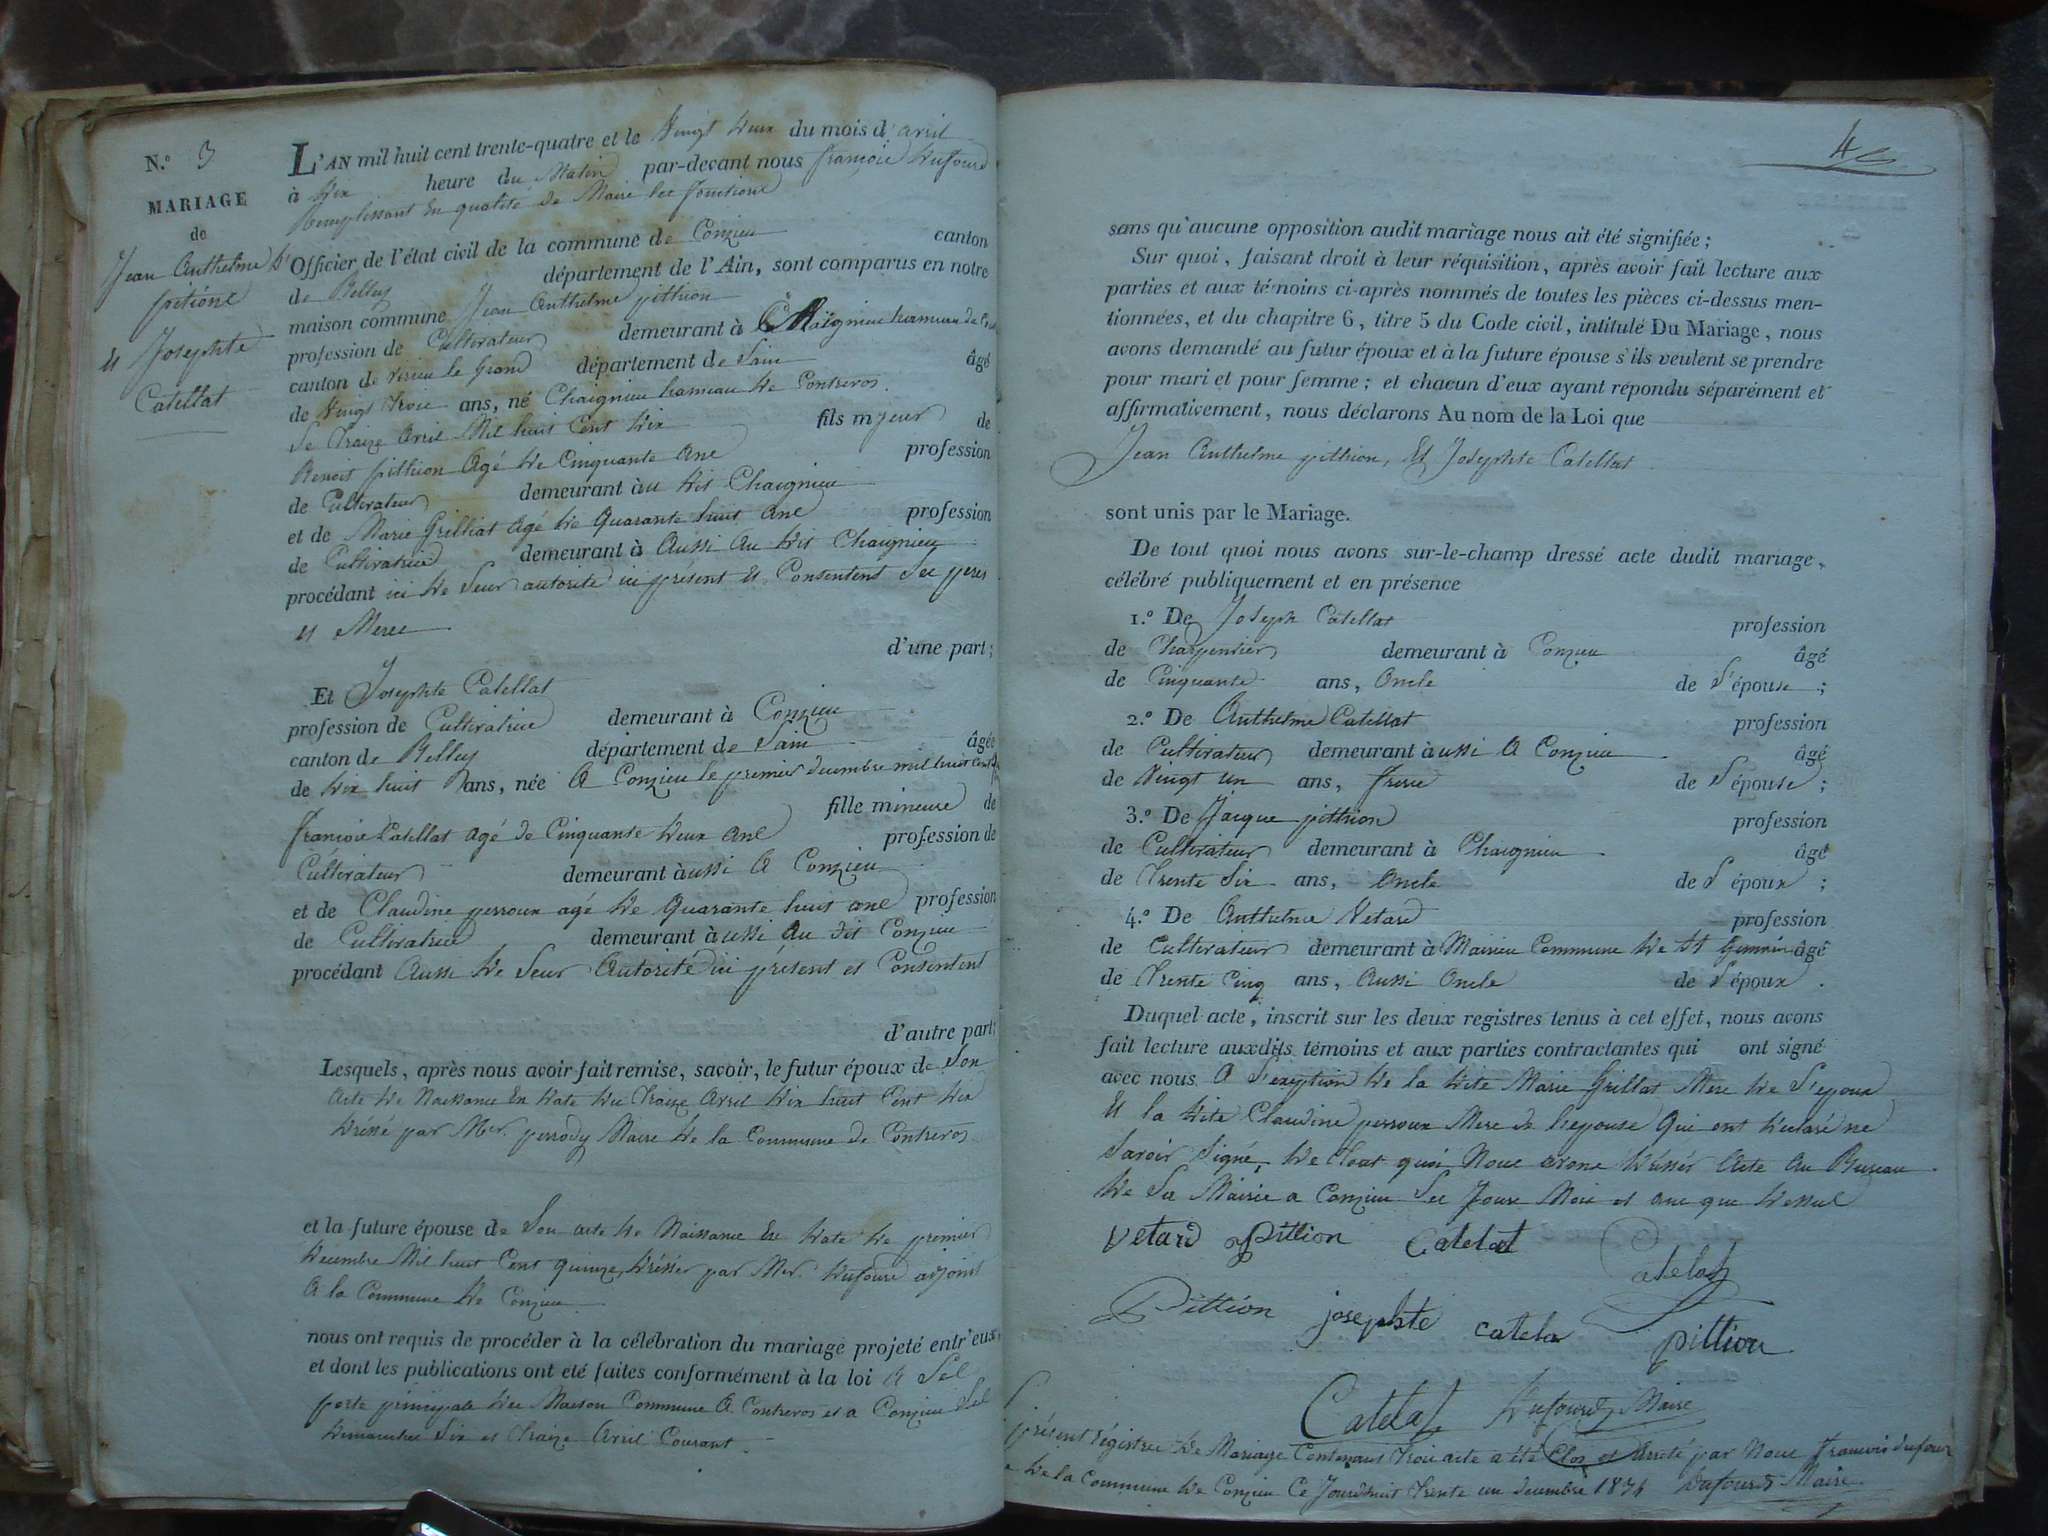 N.º 3
MARIAGE
de
Jean Anthelme
pitione
et Josephte
Catellat
L'AN mil huit cent trente-quatre et le Vingt deux du mois d'avril
à dix heure du Matin par-devant nous françoie dufourd
Remplissant en qualité de Maire les fonctione
Officier de l'état civil de la commune de Conzieu canton
de Belley département de l'Ain, sont comparus en notre
maison commune Jean Anthelme pittion
profession de Cultivateur demeurant à Chaignieu hameau de
canton de virieu le grand département de Lain âgé
de Vingt troie ans, né Chaignieu hameau de Contrevos.
Le traize avril Mil huit Cent dix fils mjeur de
Benoit pittion Agé de Cinquante Ane profession
de Cultivateur demeurant àu dit Chaignieu
et de Marie Grilliat agé de Quarante huit ane profession
de Cultivatrice demeurant à Aussi Au dit Chaignieu
procédant ici de Leur autorité ici présent et Consentent Les peres
et Meres
d'une part;
Et Josephte Catellat
profession de Cultivatrice demeurant à Conzieu
canton de Belley département de Lain âgée
de dix huit ans, née A Conzieu le premier decembre mil huit cent
fille mineure de
françoie Catellat agé de Cinquante deux ane profession de
Cultivateur demeurant àussi A Conzieu
et de Claudine perroux agé de Quarante huit ane profession
de Cultivatrice demeurant àussi Au dit Conzieu
procédant Aussi de Leur Autorité ici présent et Consentent
d'autre part;
Lesquels, après nous avoir fait remise, savoir, le futur époux de Son
Acte de Naissance En date du traize Avril dix huit Cent dix
dréssé par Mer. perrody Maire de la Commune de Contrevos
et la future épouse de Son acte de Naissance En date de premier
decembre Mil huit Cent quinze, drésser par Mer. dufourd adjoint
A la Commune de Conzieu
nous ont requis de procéder à la célébration du mariage projeté entr'eux,
et dont les publications ont été faites conformément à la loi A Lel
porte principale des Maison Commune A Contrevos et a Conzieu Lel
dimanches Six et traize Avril Courant.
4
sans qu'aucune opposition audit mariage nous ait été signifiée;
Sur quoi, faisant droit à leur réquisition, après avoir fait lecture aux
parties et aux témoins ci-après nommés de toutes les pièces ci-dessus men-
tionnées, et du chapitre 6, titre 5 du Code civil, intitulé Du Mariage, nous
avons demandé au futur époux et à la future épouse s'ils veulent se prendre
pour mari et pour femme; et chacun d'eux ayant répondu séparément et
affirmativement, nous déclarons Au nom de la Loi que
Jean Anthelme pittion, Et Josephte Catellat
sont unis par le Mariage.
De tout quoi nous avons sur-le-champ dressé acte dudit mariage,
célébré publiquement et en présence
1.º De Joseph Catellat profession
de Charpentier demeurant à Conzieu âgé
de Cinquante ans, Oncle de L'épouse;
2.º De Anthelme Catellat profession
de Cultivateur demeurant àussi A Conzieu âgé
de Vingt un ans, frere de L'épouse;
3.º De Jacque pittion profession
de Cultivateur demeurant à Chaignieu âgé
de trente Six ans, Oncle de L'époux;
4.º De Anthelme Vetard profession
de Cultivateur demeurant à Mairieu Commune de St Germain âgé
de trente Cinq ans, Aussi Oncle de L'époux.
Duquel acte, inscrit sur les deux registres tenus à cet effet, nous avons
fait lecture auxdits témoins et aux parties contractantes qui ont signé
avec nous A L'exeption de la dite Marie Grillat Mere de L'epoux
Et la dite Claudine perroux Mere de Lepouse Qui ont declaré ne
Savoir Signé, de tout quoi Noue avone drésser Acte Au Bureau
de La Mairie a Conzieu Les Jour Moie et ane que dessul
Vetard Pittion Catelat
Catelat
Pittion josephte catela pittion
Catelat Dufourd Maire
présent régistre de Mariage Contenant troie acte a été Clos et arreté par Noue francois dufour
de la Commune de Conzieu Ce Jourdhuit trente un decembre 1834 Dufourd Maire